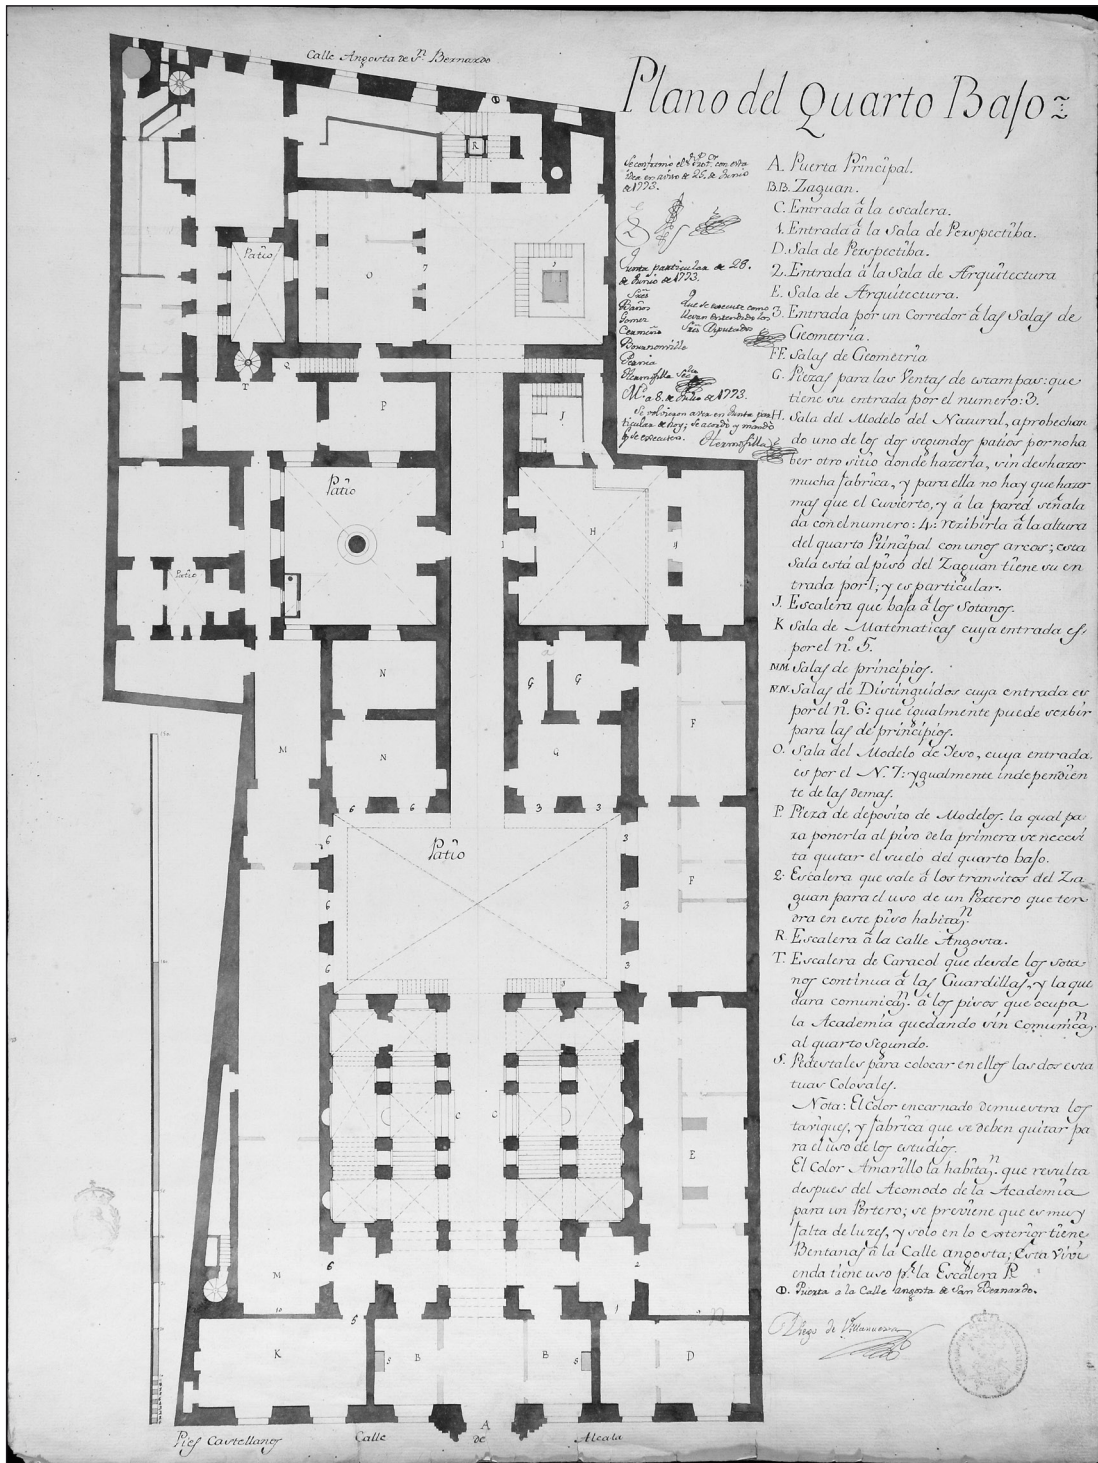 Calle Angosta de Sn. Bernardo
Plano del Quarto Baso
Se conformó el Sr. Prot. con esta
idea en aviso de 25, de Junio
de 1773.
Junta particular de 28.
de Junio de 1773.
Sres
Baños
Gomez
Cermeño
Bournonville
Pernia
Hermosilla Srio
Que se execute como
llevan entendido los
Sres Diputados
Md. a 8. de Julio de 1773.
Se volvieron a ver en Junta par
ticular de hoy; se acordó y mandó
q. se executen. Hermosilla
A. Puerta Principal.
B.B. Zaguan.
C. Entrada â la escalera.
1. Entrada â la Sala de Perspectiba.
D. Sala de Perspectiba.
2. Entrada â la Sala de Arquitectura
E. Sala de Arquitectura.
3. Entrada por un Corredor â las Salas de
Geometria.
FF. Salas de Geometria
G. Piezas para las Ventas de estampas: que
tiene su entrada por el numero: 3.
H. Sala del Modelo del Natural, aprobechan
do uno de los dos segundos patios por no ha
ber otro sitio donde hazerla, sin deshazer
mucha fabrica, y para ella no hay que hazer
mas que el Cuvierto, y â la pared señala
da con el numero: 4: rezibirla â la altura
del quarto Principal con unos arcos; esta
Sala está al piso del Zaguan tiene su en
trada por I; y es particular.
J. Escalera que baja â los Sotanos.
K Sala de Matematicas cuya entrada es,
por el no. 5.
M.M. Salas de principios.
N.N. Salas de Distinguidos cuya entrada es
por el no. 6: que igualmente puede serbir
para las de principios.
O. Sala del Modelo de Yeso, cuya entrada
es por el N. 7: ygualmente independien
te de las demas.
P. Pieza de deposito de Modelos. la qual pa
ra ponerla al piso de la primera se necesi
ta quitar el suelo del quarto bajo.
Q: Escalera que sale â los transitos del Za
guan para el uso de un Portero que ten
dra en este piso habitan.
R. Escalera â la calle Angosta.
T. Escalera de Caracol que desde los sota
nos continua â las Guardillas, y la que
dara comunican. â los pisos, que ocupa
la Academia quedando sin comunican.
al quarto segundo.
S. Pedestales para colocar en ellos las dos esta
tuas Colosales.
Nota: El Color encarnado demuestra los
taviques, y fabrica que se deben quitar pa
ra el uso de los estudios.
El Color Amarillo la habitan. que resulta
despues del Acomodo de la Academia
para un Portero; se previene que es muy
falta de luzes, y solo en lo exterior tiene
Bentanas â la Calle angosta; Esta Vivi
enda tiene uso pr. la Escalera R.
Φ. Puerta a la Calle angosta de San Bernardo.
Diego de Villanueva
R
Patio
O
7
J
T
Q
P
J
Patio
1
H
4
Patio
N
G
G
M
N
G
F
6
6
3
3
6
Patio
3
6
3
F
6
3
C
C
E
M
6
2
5
1
K
S
B
B
S
D
A
Pies Castellanos
Calle
de
Alcala